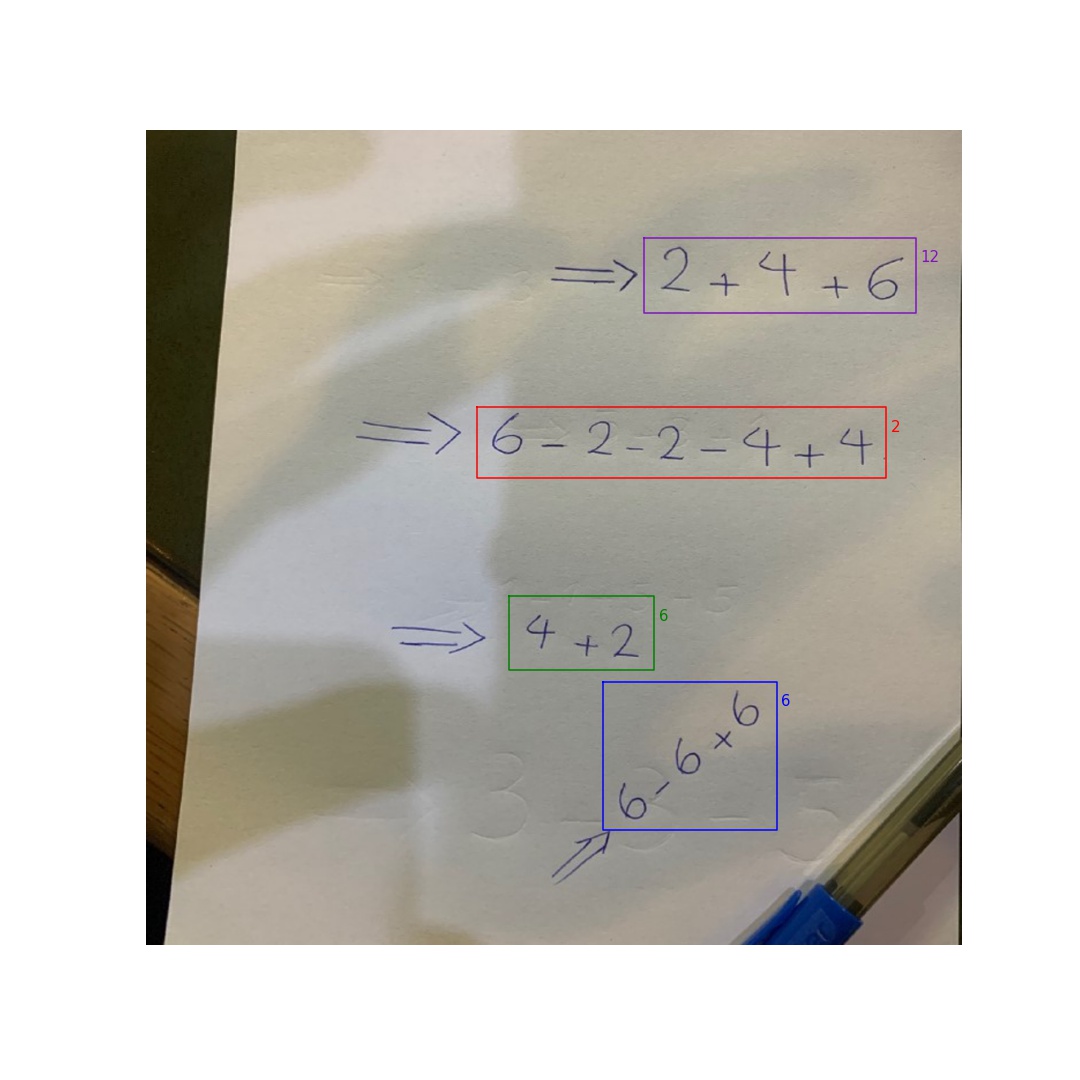 ⇒ 2 + 4 + 6 12
⇒ 6 - 2 - 2 - 4 + 4 2
⇒ 4 + 2 6
⇒ 6 - 6 × 6 6